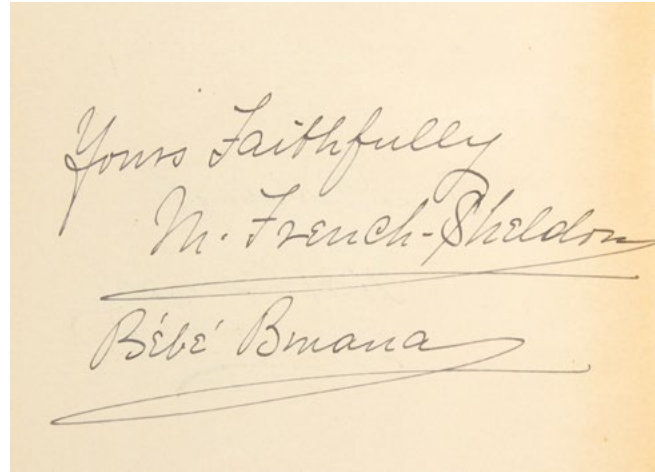 Yours Faithfully
M. French-Sheldon
Bébé Bwana